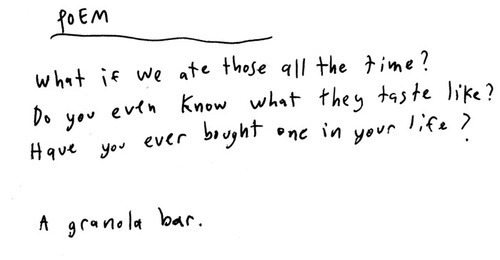 POEM
What if we ate those all the time?
Do you even know what they taste like?
Have you ever bought one in your life?
A granola bar.